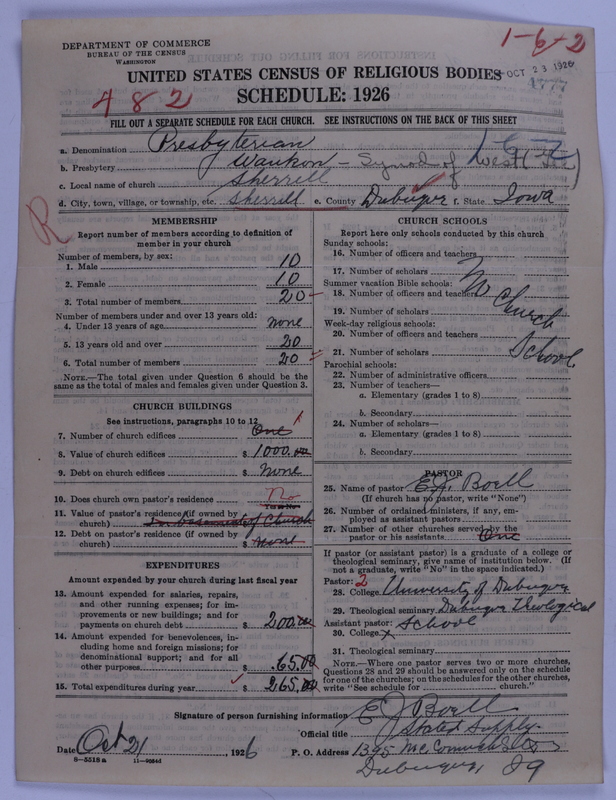 DEPARTMENT OF COMMERCE
BUREAU OF THE CENSUS
WASHINGTON
1-6-2
OCT 23 1926
UNITED STATES CENSUS OF RELIGIOUS BODIES
482
SCHEDULE: 1926
FILL OUT A SEPARATE SCHEDULE FOR EACH CHURCH. SEE INSTRUCTIONS ON THE BACK OF THIS SHEET
a. Denomination Presbyterian
b. Presbytery Waukon - Synod of West
c. Local name of church Sherrill
d. City, town, village, or township, etc. Sherrill e. County Dubuque f. State Iowa
R
MEMBERSHIP
Report number of members according to definition of
member in your church
Number of members, by sex:
1. Male 10
2. Female 10
3. Total number of members 20
Number of members under and over 13 years old:
4. Under 13 years of age none
5. 13 years old and over 20
6. Total number of members 20
NOTE.—The total given under Question 6 should be the
same as the total of males and females given under Question 3.
CHURCH BUILDINGS
See instructions, paragraphs 10 to 12
7. Number of church edifices One 1
8. Value of church edifices $ 1000.00
9. Debt on church edifices $ None
10. Does church own pastor's residence No
Yes or No
11. Value of pastor's residence (if owned by
church) In basement of Church
12. Debt on pastor's residence (if owned by
church) $ None
EXPENDITURES
Amount expended by your church during last fiscal year
13. Amount expended for salaries, repairs,
and other running expenses; for im-
provements or new buildings; and for
payments on church debt $ 200.00
14. Amount expended for benevolences, in-
cluding home and foreign missions; for
denominational support; and for all
other purposes $ 65.00
15. Total expenditures during year $ 265.00
CHURCH SCHOOLS
Report here only schools conducted by this church
Sunday schools:
16. Number of officers and teachers
17. Number of scholars
Summer vacation Bible schools:
18. Number of officers and teachers No
19. Number of scholars Church
Week-day religious schools:
20. Number of officers and teachers
21. Number of scholars School
Parochial schools:
22. Number of administrative officers
23. Number of teachers—
a. Elementary (grades 1 to 8)
b. Secondary
24. Number of scholars—
a. Elementary (grades 1 to 8)
b. Secondary
PASTOR
25. Name of pastor E.J. Boell
(If church has no pastor, write "None")
26. Number of ordained ministers, if any, em-
ployed as assistant pastors
27. Number of other churches served by the
pastor or his assistants One
If pastor (or assistant pastor) is a graduate of a college or
theological seminary, give name of institution below. (If
not a graduate, write "No" in the space indicated.)
Pastor: 2
28. College University of Dubuque
29. Theological seminary Dubuque Theological
Assistant pastor: School
30. College x
31. Theological seminary
NOTE.—Where one pastor serves two or more churches,
Questions 28 and 29 should be answered only on the schedule
for one of the churches; on the schedules for the other churches,
write "See schedule for church."
Signature of person furnishing information E J Boell
Official title Stated Supply
Date Oct 21, 1926 P. O. Address 1395 McCormick St
8—5518a 11—9064d Dubuque, Ia